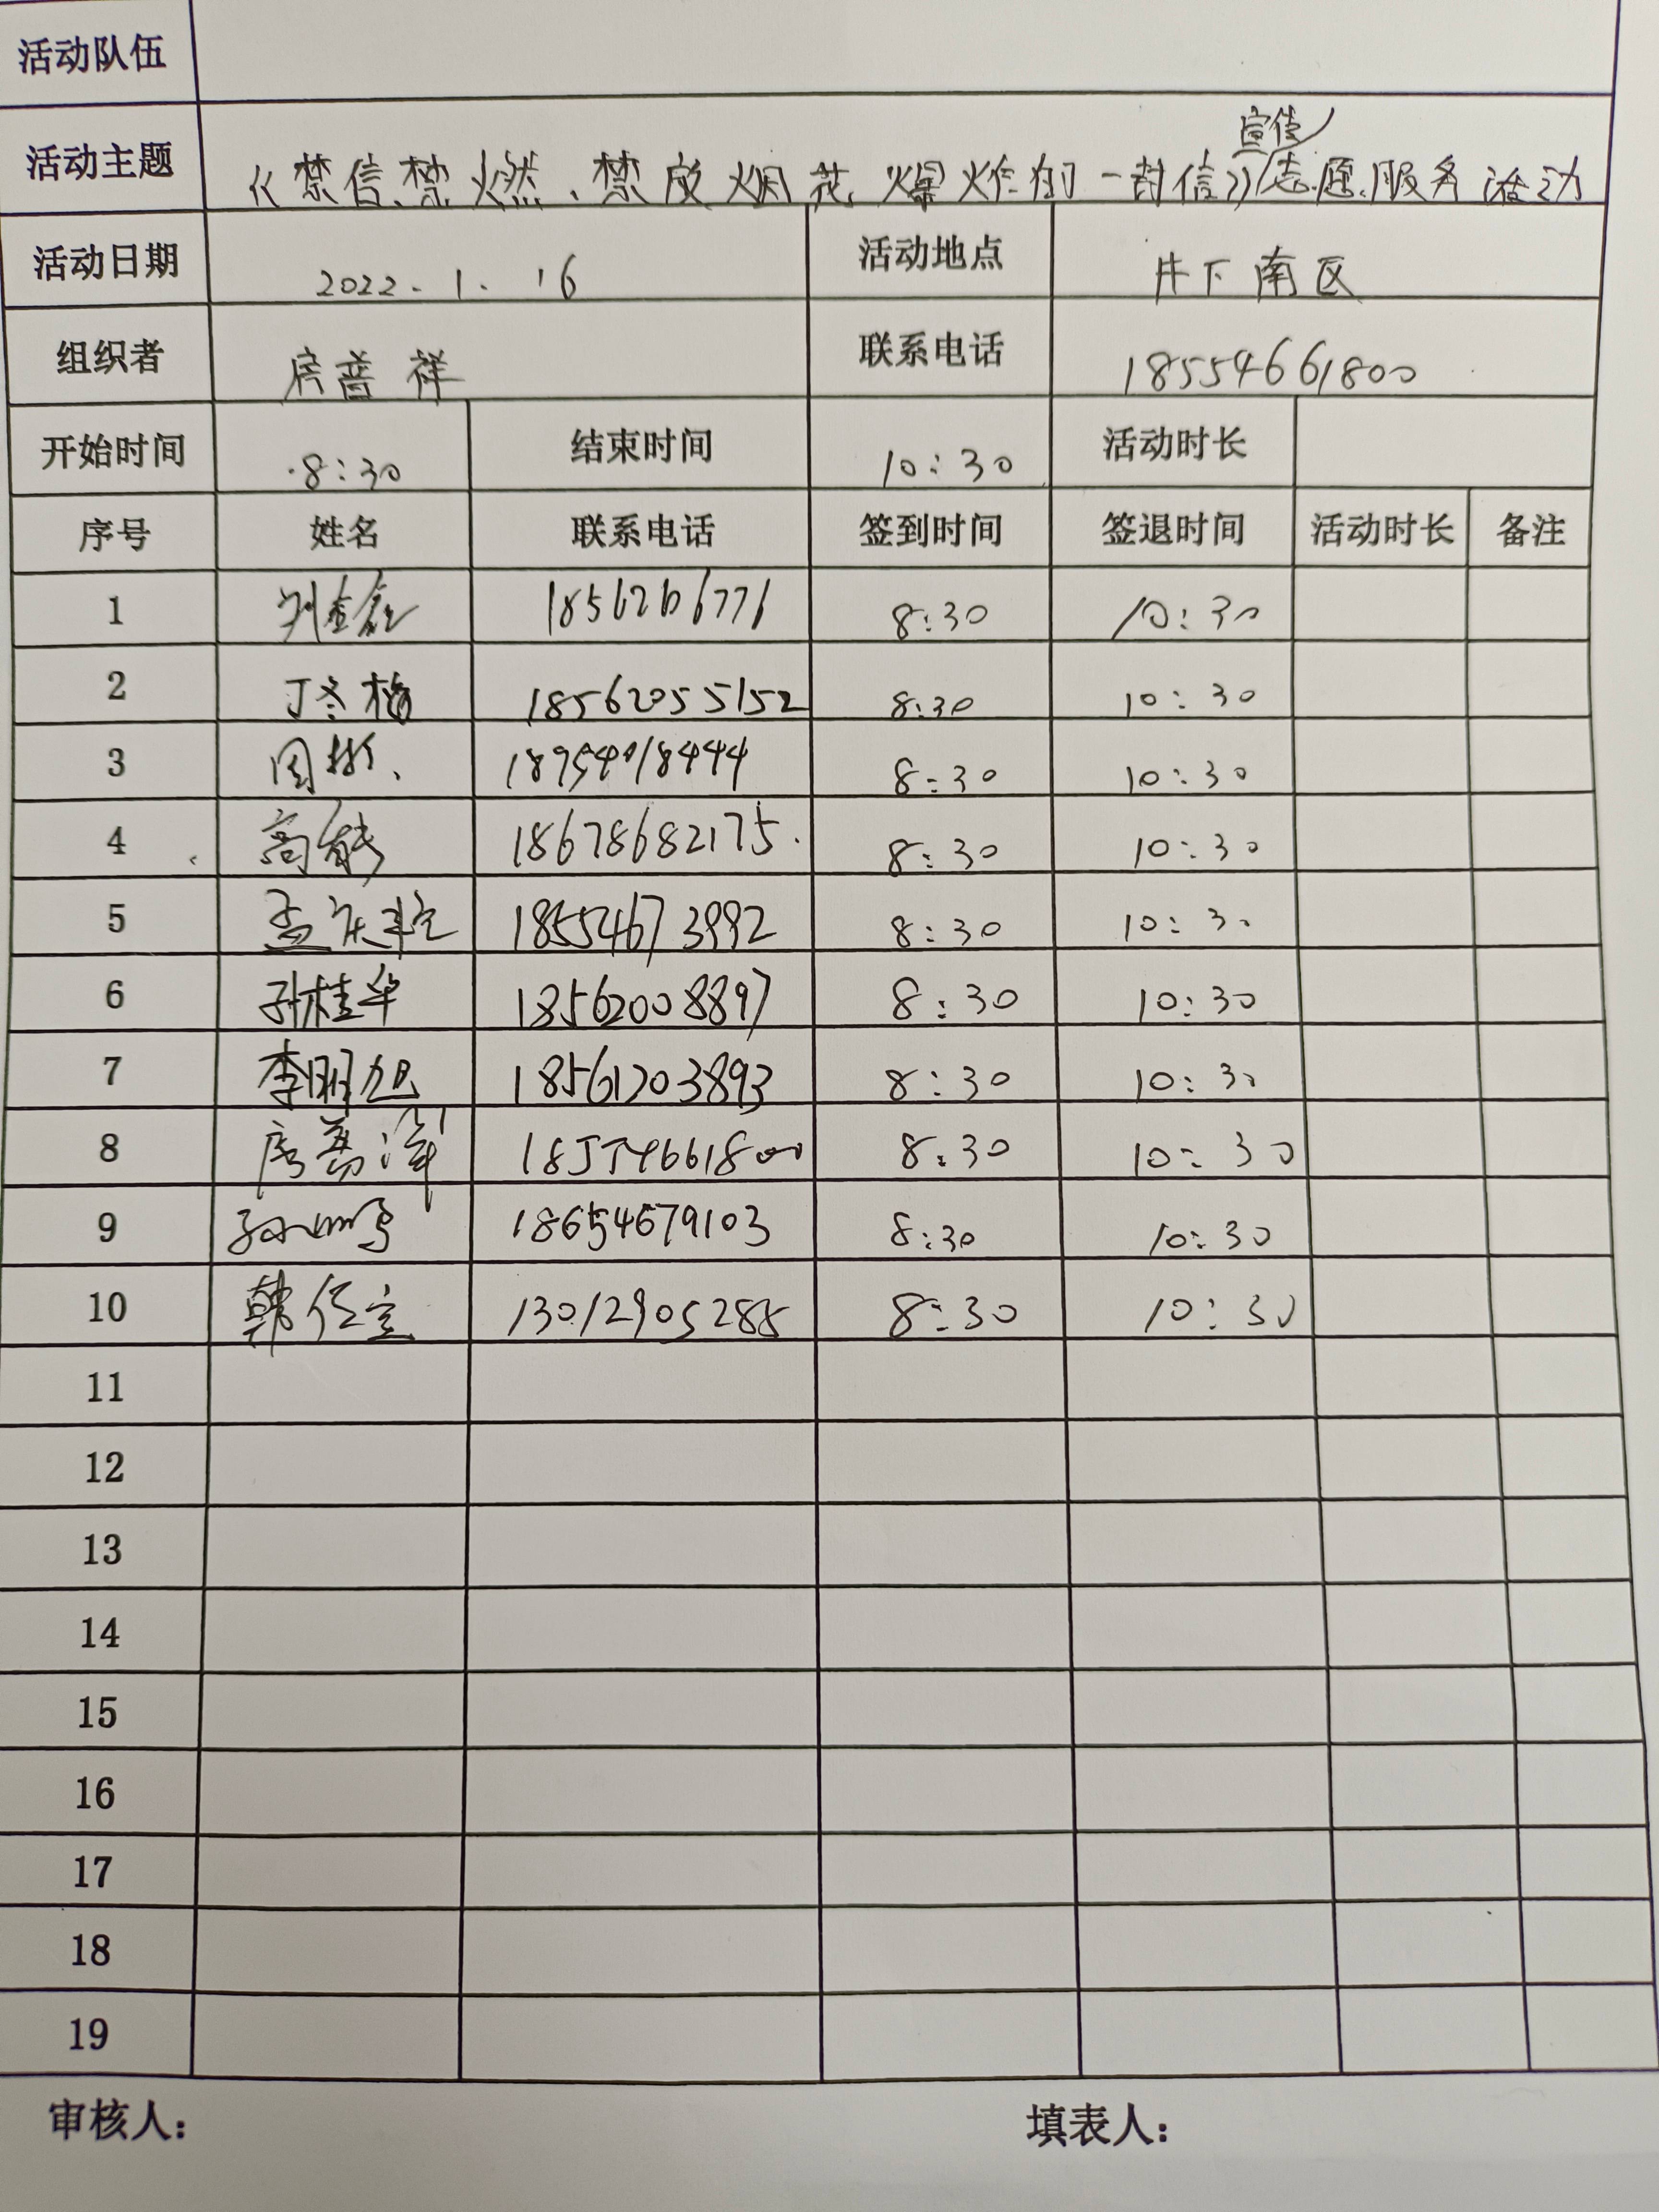 活动队伍
活动主题 《禁信、禁燃、禁放烟花爆炸的一封信》宣传志愿服务活动
活动日期 2022.1.16 活动地点 井下南区
组织者 房普祥 联系电话 18554661800
开始时间 8:30 结束时间 10:30 活动时长
序号 姓名 联系电话 签到时间 签退时间 活动时长 备注
1 8:30 10:30
2 丁冬梅 18562055152 8:30 10:30
3 8:30 10:30
4 高彦 18678682175 8:30 10:30
5 18554673992 8:30 10:30
6 孙桂华 18562008897 8:30 10:30
7 李明旭 18561203893 8:30 10:30
8 18554661800 8:30 10:30
9 18654679103 8:30 10:30
10 8:30 10:30
11
12
13
14
15
16
17
18
19
审核人： 填表人：